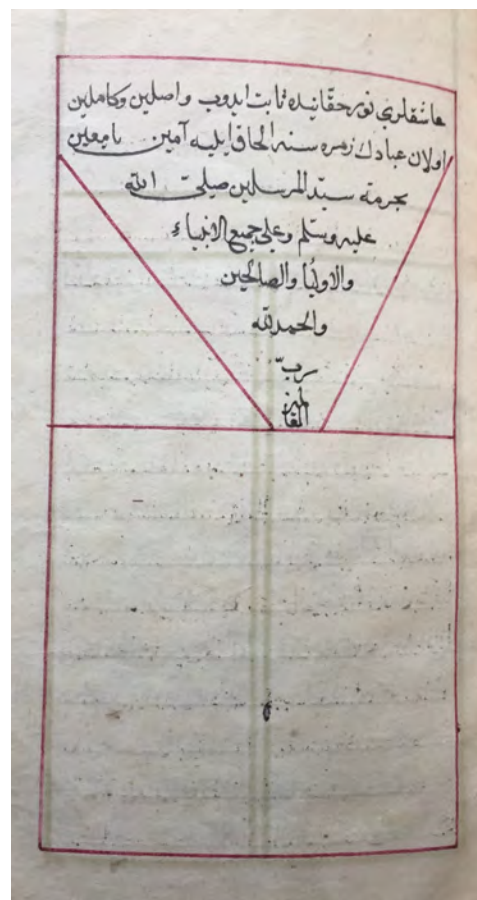 عاشقلري نور حقانيده ثابت ايدوب واصلين وكاملين
اولان عبادك زمره سنه الحاق ايليه آمين يا معين
بحرمة سيّد المرسلين صلى الله
عليه وسلم وعلى جميع الانبياء
والاوليا والصالحين
والحمد لله
ربّ
العالمين